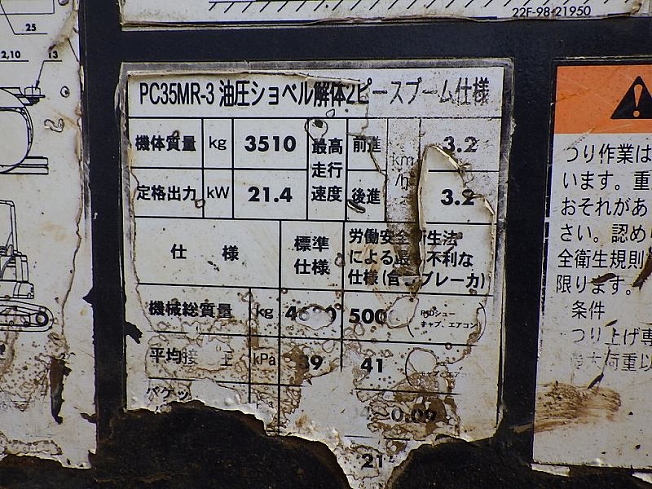 25
2,10 13
22F-98-21950
PC35MR-3 油圧ショベル解体2ピースブーム仕様
機体質量 kg 3510 最高走行速度 前進 km/h 3.2
定格出力 kW 21.4 後進 3.2
仕様 標準仕様 労働安全衛生法による最も不利な仕様(含ブレーカ)
機械総質量 kg 500
キャブ, エアコン
平均接 kPa 39 41
0.09
21
つり作業は
います。重
おそれがあ
さい。認め
全衛生規則
限ります。
条件
つり上げ専
荷重以